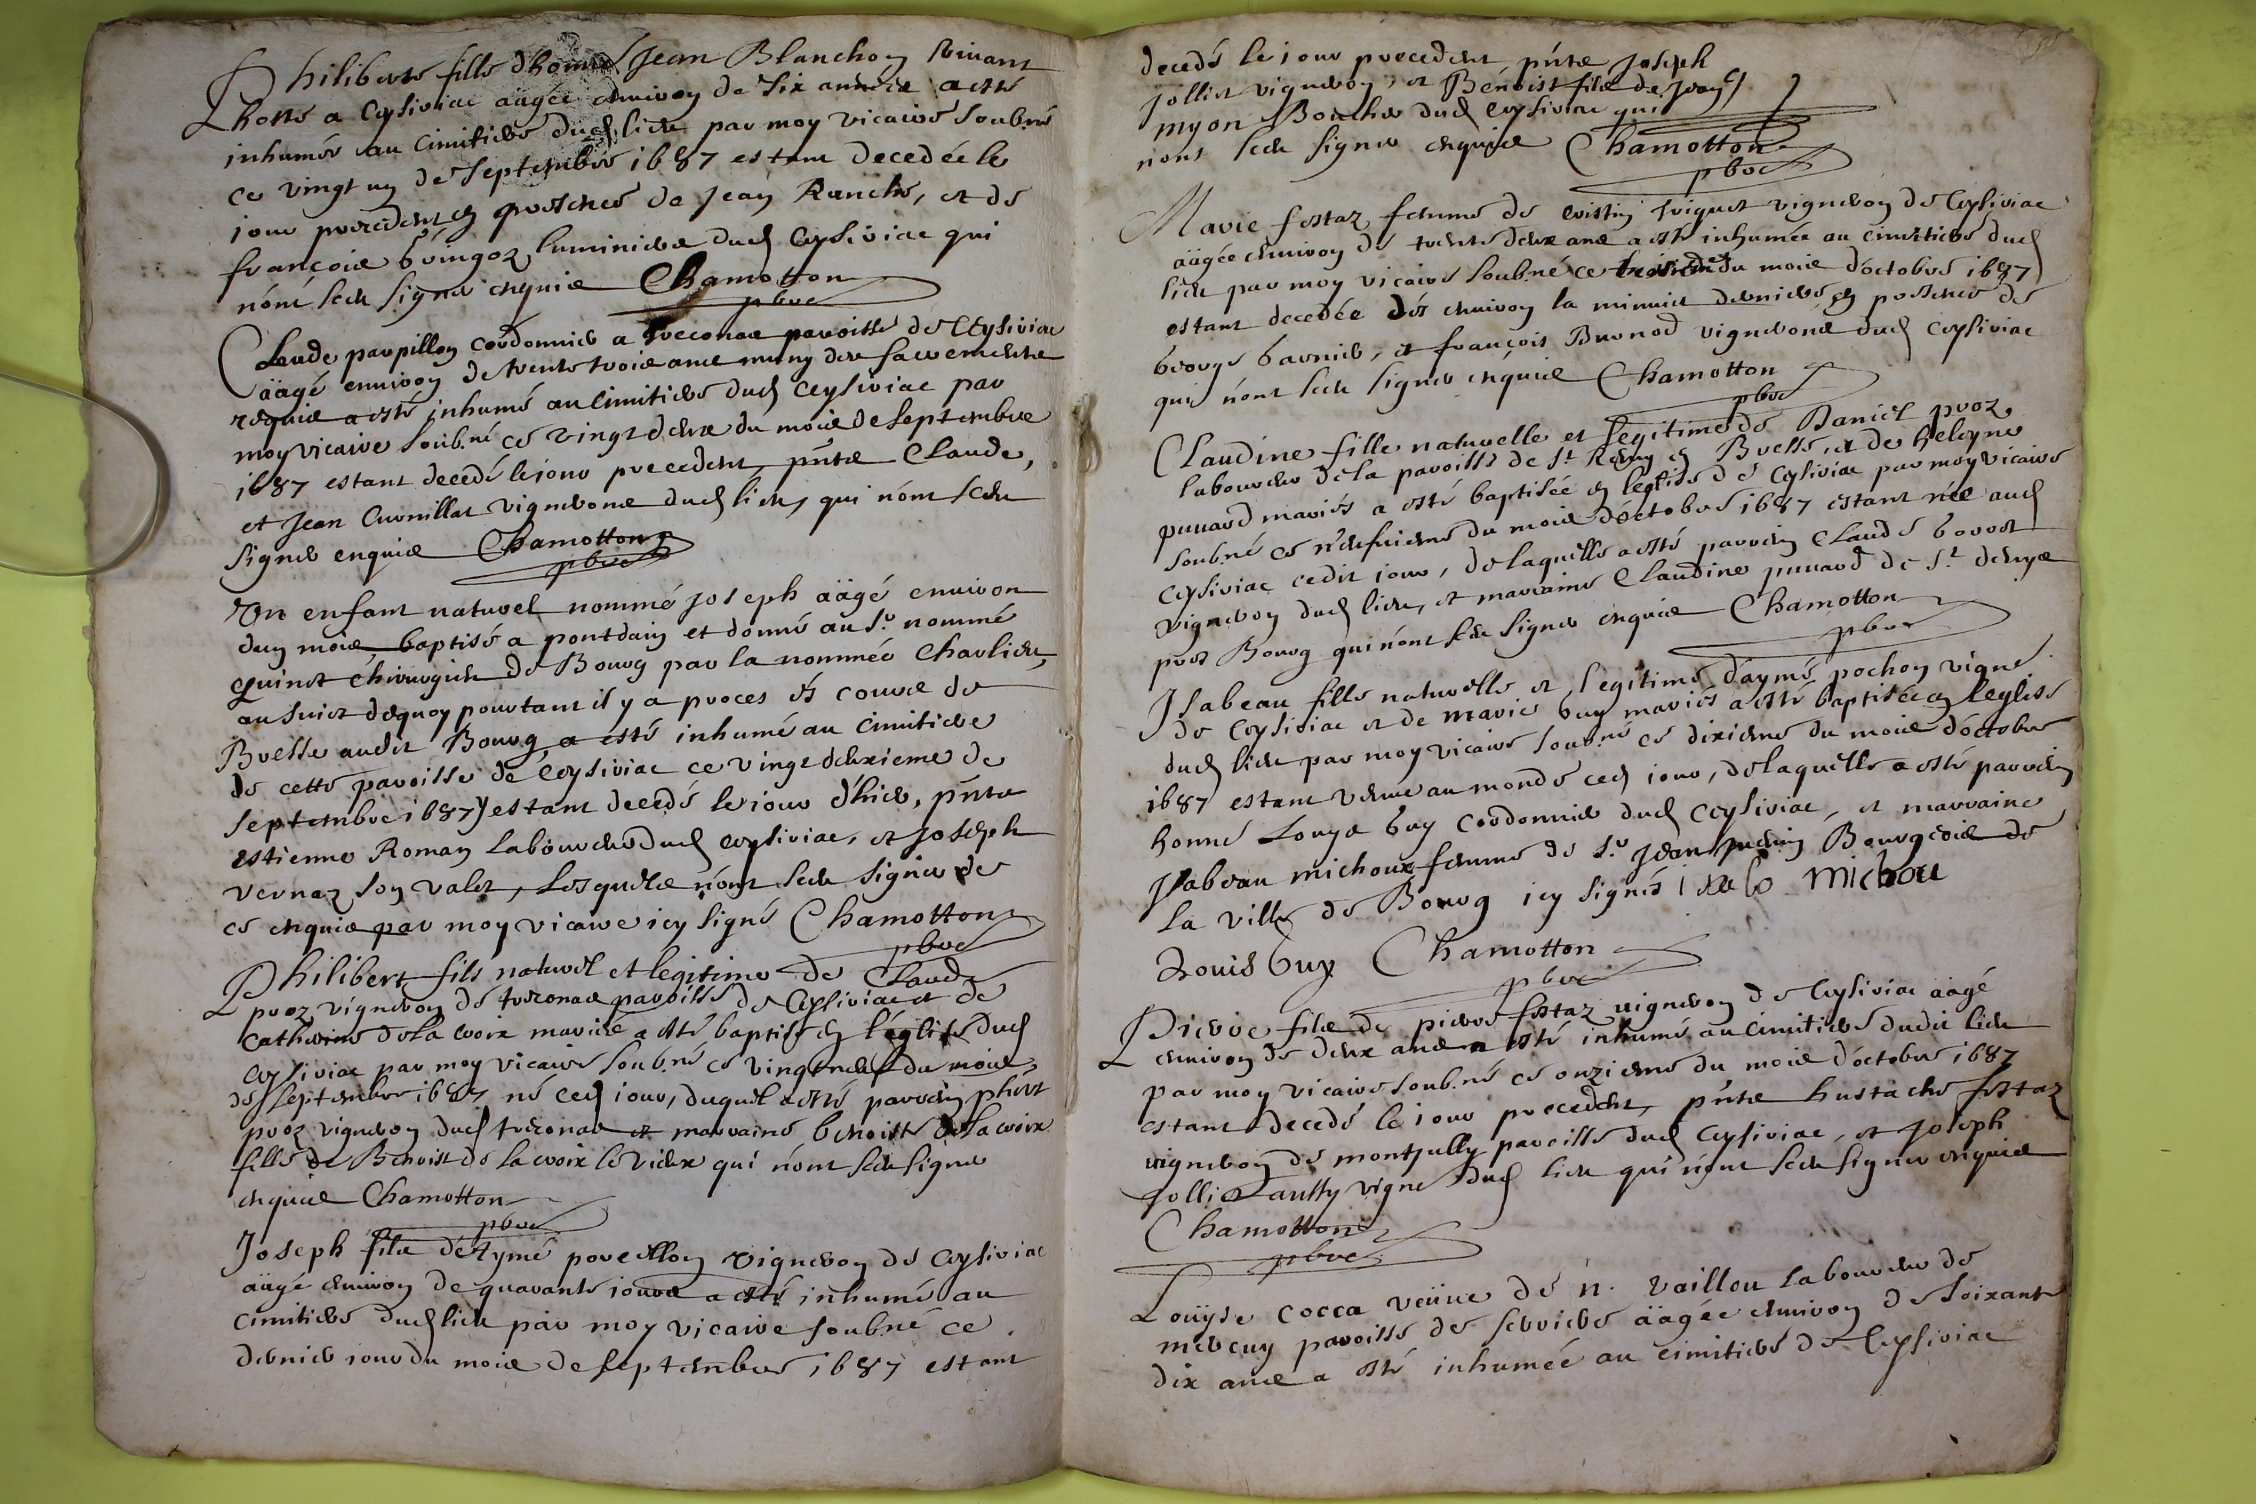 Philiberte fille d'honne Jean Blanchon vivant
hoste a Ceysiriac aâgée environ de six années a esté
inhumée au cimitiere dud. lieu par moy vicaire soub.né
ce vingt un de septembre 1687 estant decedée le
jour precedent en presence de Jean Ranche, et de
françois luminiers dud. Ceysiriac qui
n'ont sceu signer enquis Chamotton
pbre
Claude parpillon cordonnier a treconas paroisse de Ceysiriac
aâgé environ de trente trois ans muny des sacrements
requis a esté inhumé au cimitiere dud. Ceysiriac par
moy vicaire soub.né ce vingt deux du mois de septembre
1687 estant decedé le jour precedent, pñts Claude,
et Jean Curnillat vignerons dud. lieu, qui n'ont sceu
signer enquis Chamotton
pbre
Un enfant naturel nommé Joseph aâgé environ
dun mois, baptisé a pontdain et donné au Sr nommé
quinet chirurgien de Bourg par la nommée Charlieu,
au suiet dequoy pourtant il y a proces és cours de
Bresse audit Bourg, a esté inhumé au cimitiere
de cette paroisse de Ceysiriac ce vingt deuxieme de
septembre 1687 estant decedé le jour d'hier, pñts
Estienne Roman laboureur dud. Ceysiriac, et Joseph
vernaz son valet, lesquels n'ont sceu signer de
ce enquis par moy vicaire icy signé Chamotton
pbre
Philibert fils naturel et legitime de Claude
proz vigneron de treconas paroisse de Ceysiriac et de
Catherine de la croix mariés a esté baptisé en l'église dud.
Ceysiriac par moy vicaire soub.né ce vingt neuf du mois
de septembre 1687 né ced. jour, duquel a esté parrein phibert
proz vigneron dud. treconas et marraine benoiste de la croix
fille de Benoist de la croix le vieux qui n'ont sceu signer
enquis Chamotton
pbre
Joseph fils d'Aymé porcillon vigneron de Ceysiriac
aâgé environ de quarante jours a esté inhumé au
cimitiere dud. lieu par moy vicaire soub.né ce
dernier jour du mois de septembre 1687 estant
decedé le jour precedent, pñts Joseph
Jolliet vigneron, et Benoist fils de Jean
myon Boucher dud. Ceysiriac qui
n'ont sceu signer enquis Chamotton
pbre
Marie festaz femme de vigneron de Ceysiriac
aâgée environ de trente deux ans a esté inhumée au cimitiere dud.
lieu par moy vicaire soub.né ce troisieme du mois d'octobre 1687
estant decedée dés environ la minuit derniere, en presence de
George Garnier, et françois Burnod vignerons dud. Ceysiriac
qui n'ont sceu signer enquis Chamotton
pbre
Claudine fille naturelle et legitime de Daniel proz
laboureur de la paroisse de St Remy en Bresse, et de heleyne
puuard mariés a esté baptisée en l'eglise de Ceysiriac par moy vicaire
soub.né ce neufuieme du mois d'octobre 1687 estant née aud.
Ceysiriac cedit jour, de laquelle a esté parrein Claude
vigneron dud. lieu, et marraine Claudine puuard de St denys
pres Bourg qui n'ont sceu signer enquis Chamotton
pbre
Isabeau fille naturelle et legitime d'aymé pochon vigne.
de Ceysiriac et de marie Guy mariés a esté baptisée en l'eglise
dud. lieu par moy vicaire soub.né ce dixieme du mois d'octobre
1687 estant venue au monde ced. jour, de laquelle a esté parrein
honne Louys Guy cordonnier dud. Ceysiriac, et marraine
Isabeau michoux femme de Sr Jean Bourgeois de
la ville de Bourg icy signés Michou
Louis Guy Chamotton
pbre
Pierre fils de pierre festaz vigneron de Ceysiriac aâgé
environ de deux ans a esté inhumé au cimitiere dudit lieu
par moy vicaire soub.né ce onzieme du mois d'octobre 1687
estant decedé le jour precedent, pñts Eustache festaz
vigneron de montjully paroisse dud. Ceysiriac, et Joseph
Jolliet aussy vigne. dud. lieu qui n'ont sceu signer enquis
Chamotton
pbre
Louÿse cocca veüue de n. vaillou laboureur de
paroisse de aâgée environ de soixante
dix ans a esté inhumée au cimitiere de Ceysiriac